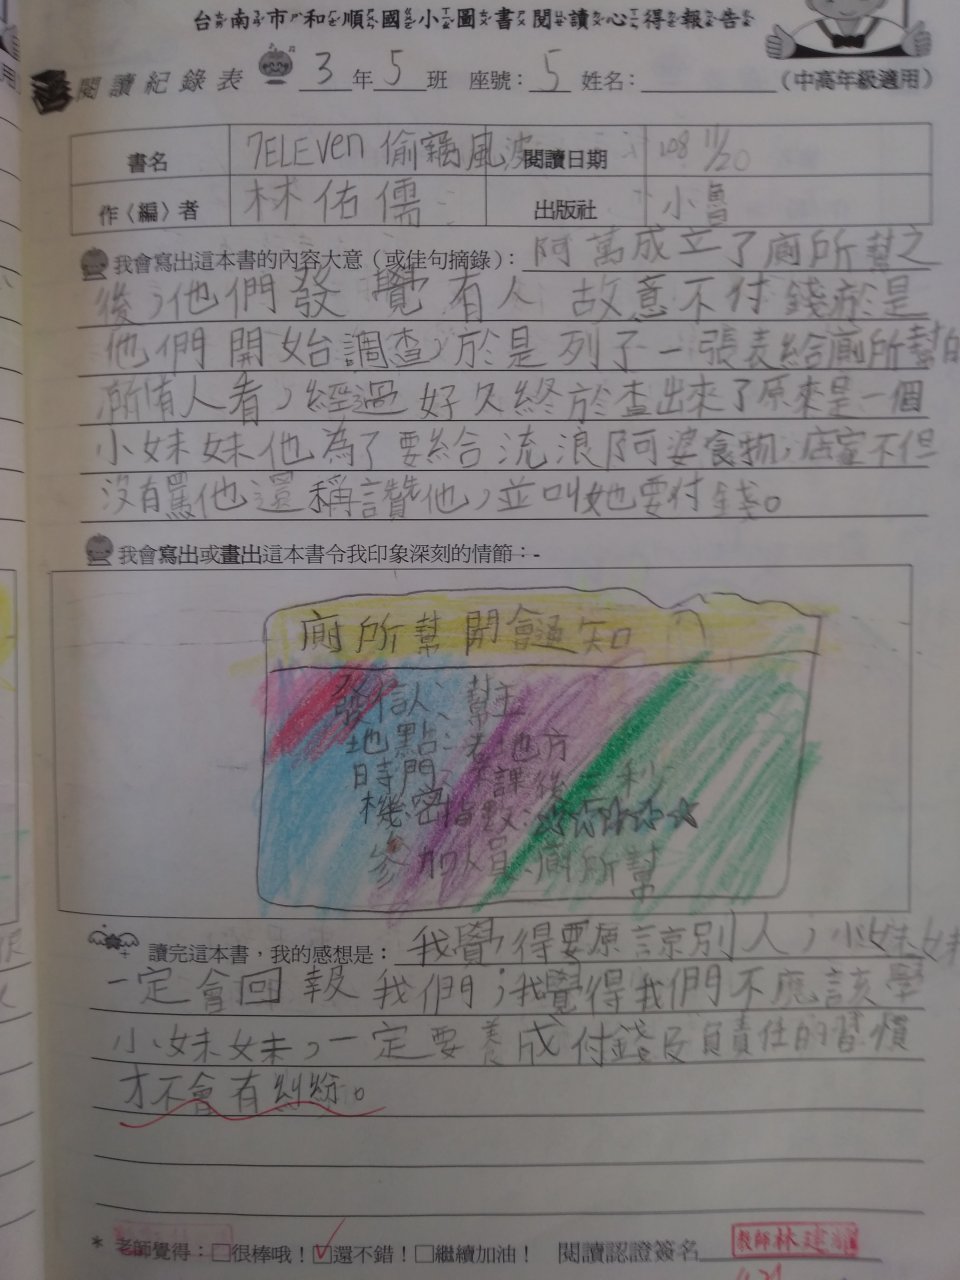 台南市和順國小圖書閱讀心得報告
閱讀紀錄表 3年5班 座號：5 姓名： （中高年級適用）
書名 7ELEVEn 偷竊風波 閱讀日期 108 11/20
作〈編〉者 林佑儒 出版社 小魯
我會寫出這本書的內容大意（或佳句摘錄）： 阿萬成立了廁所幫之
後，他們發覺有人故意不付錢於是
他們開始調查，於是列了一張表給廁所幫的
所有人看，經過好久終於查出來了原來是一個
小妹妹他為了要給流浪阿婆食物，店家不但
沒有罵他還稱讚他，並叫她要付錢。
我會寫出或畫出這本書令我印象深刻的情節：-
廁所幫開會通知
發信人：幫主
地點：老地方
時間：課後三秒
機密指數：☆☆☆☆☆
參加人員：廁所幫
讀完這本書，我的感想是： 我覺得要原諒別人，小妹妹
一定會回報我們；我覺得我們不應該學
小妹妹，一定要養成付錢及負責任的習慣
才不會有糾紛。
* 老師覺得：□很棒哦！☑還不錯！□繼續加油！ 閱讀認證簽名 教師林建